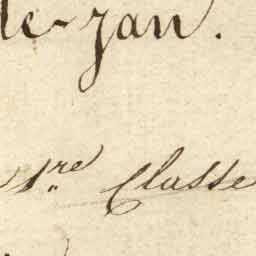 le-jan.
1re Classe